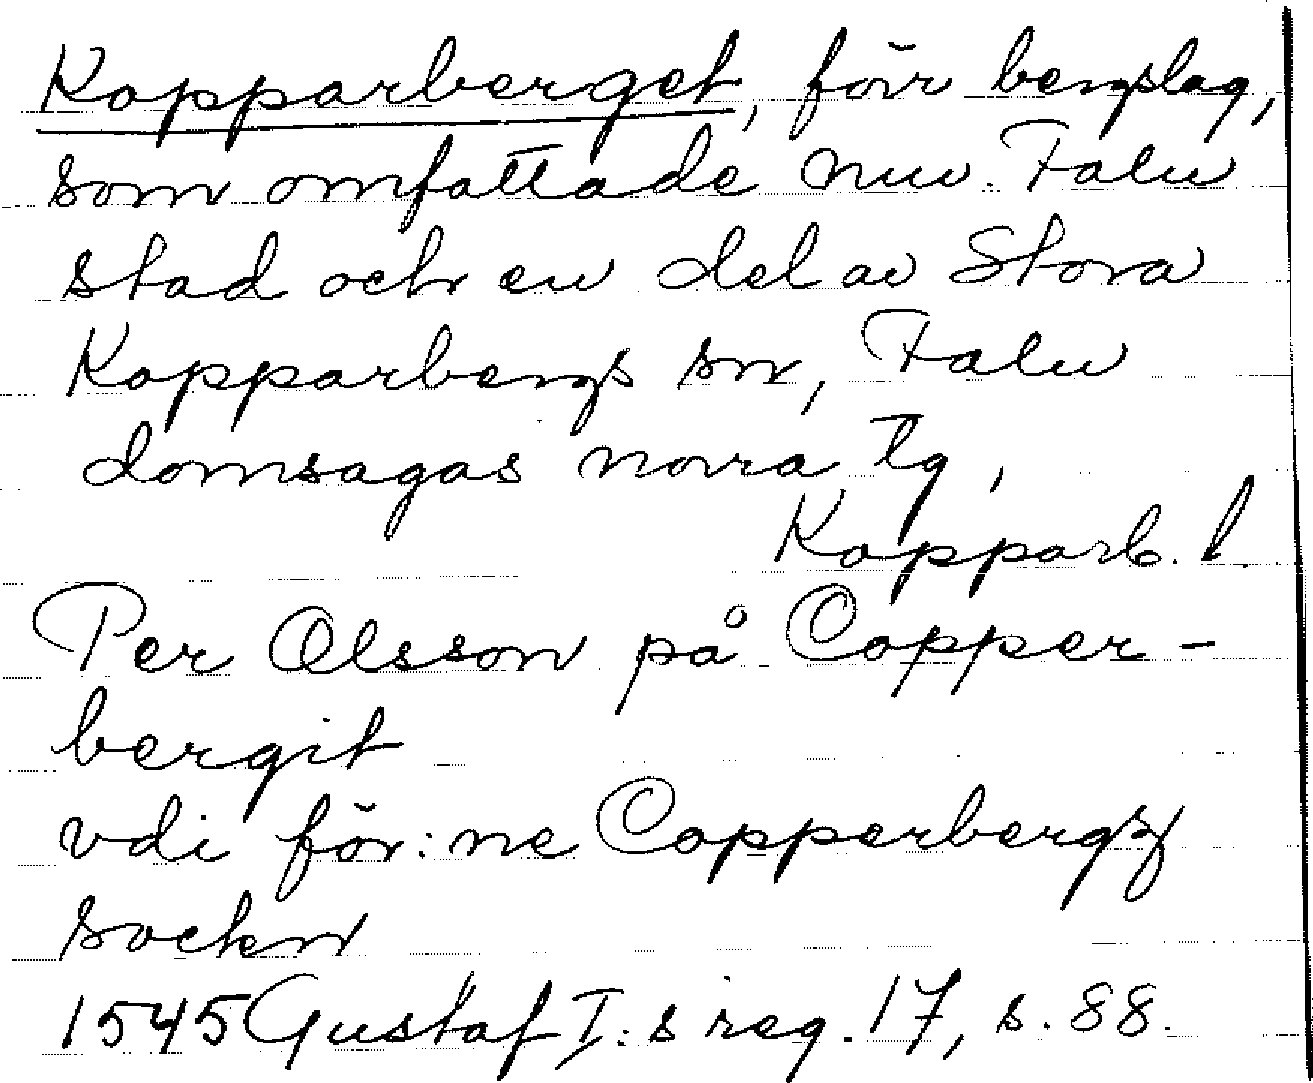 Kopparberget, förr bergslag,
som omfattade nuv. Falu
stad och en del av Stora
Kopparbergs sn, Falu
domsagas norra tg,
Kopparb. l.
Per Olsson på Copper-
bergit
vdi för:ne Copperbergz
sockn
1545 Gustaf I:s reg. 17, s. 88.